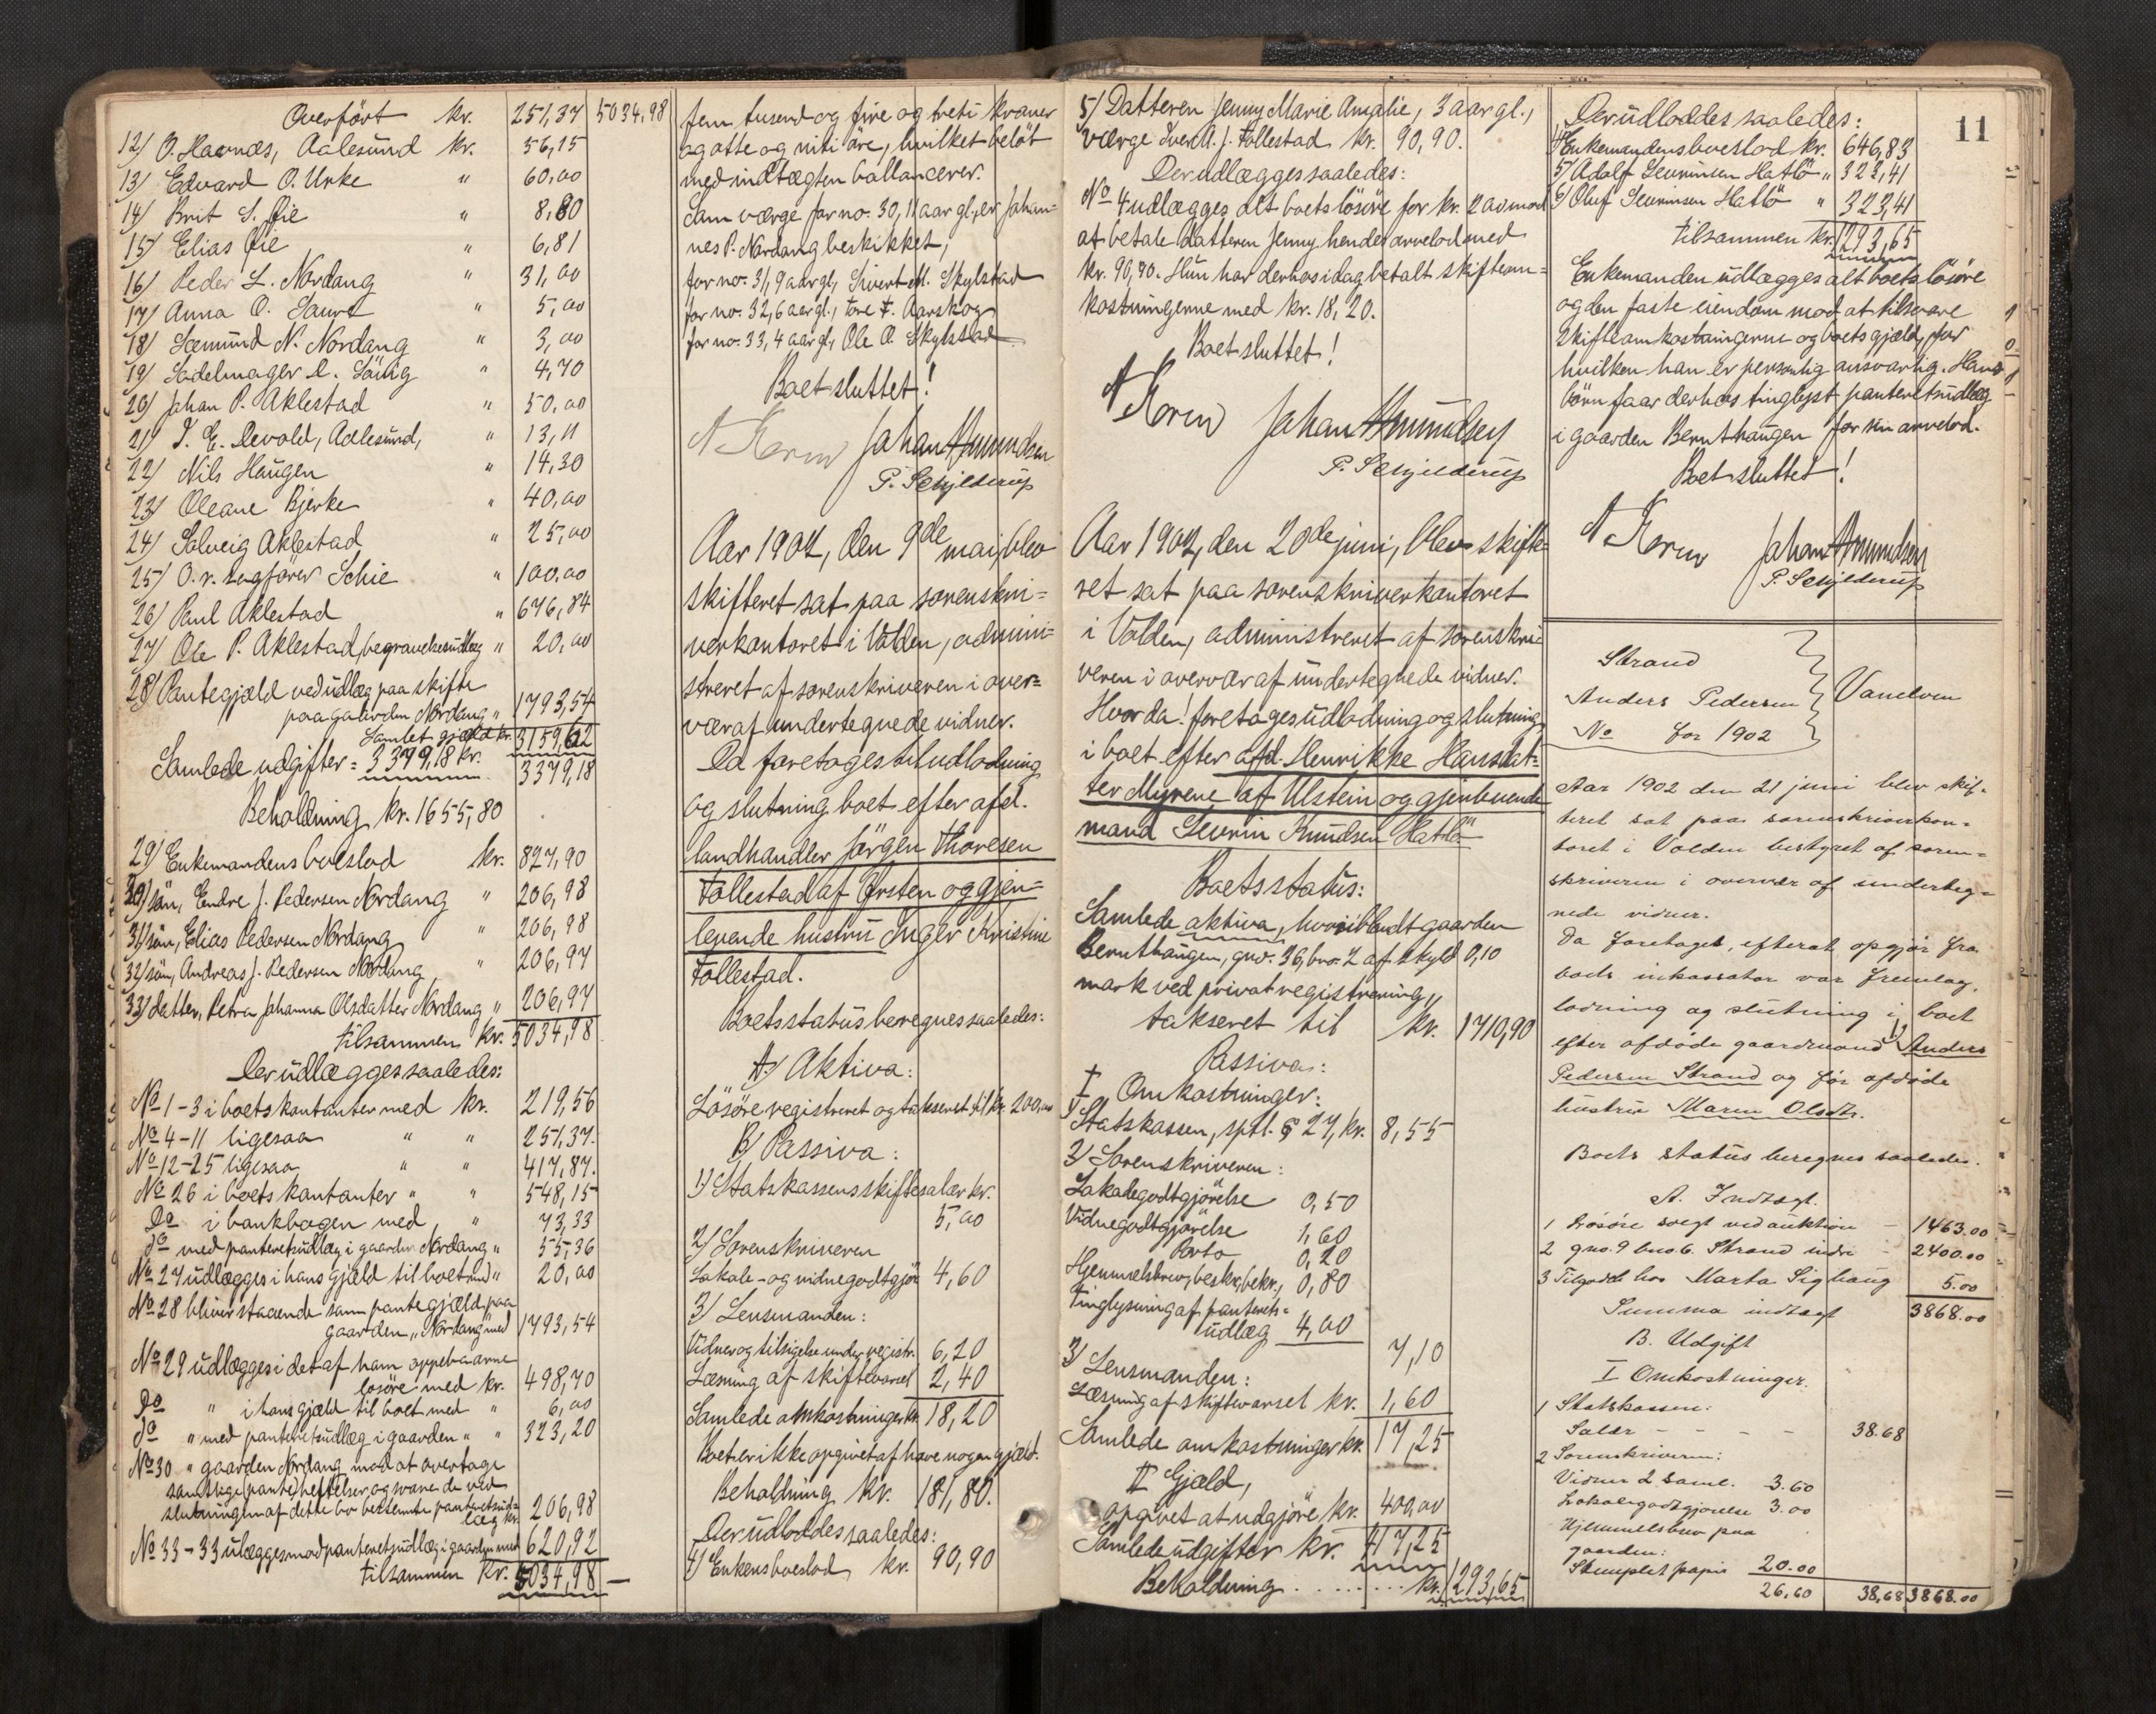 Overført kr. 251,37 5034,98
12) O. Havnæs, Aalesund kr. 56,15
13) Edvard O. Urke " 60,00
14) Brit S. Øie " 8,80
15) Elias Øie " 6,81
16) Peder L. Nordang " 31,00
17) Anna O. Saure " 5,00
18) Sæmund N. Nordang " 3,00
19) Sadelmager L. " 4,70
20) Johan P. Aklestad " 50,00
21) I. E. Devold, Aalesund, " 13,11
22) Nils Haugen " 14,30
23) Oleane Bjerke " 40,00
24) Solveig Aklestad " 25,00
25) O.r. sagfører Schie " 100,00
26) Paul Aklestad " 676,84
27) Ole P. Aklestad, begravelsesudlæg " 20,00
28) Pantegjæld ved udlæg paa skifte
paa gaarden Nordang " 1793,54
Samlet gjæld kr. 3159,62
Samlede udgifter = 3379,18 kr. 3379,18
Beholdning kr. 1655,80
29) Enkemandens boeslod kr. 827,90
30) søn, Endre J. Pedersen Nordang " 206,98
31) søn, Elias Pedersen Nordang " 206,98
32) søn, Andreas J. Pedersen Nordang " 206,97
33) datter, Petra Johanna Olsdatter Nordang " 206,97
tilsammen kr. 5034,98
Der udlægges saaledes:
No 1-3 i boets kontanter med kr. 219,56
No 4-11 ligesaa " " 251,37.
No 12-25 ligesaa " " 417,87.
No 26 i boets kontanter " " 548,15
Do i bankbogen med " 73,33
do med panteretsudlæg i gaarden Nordang " 55,36
No 27 udlægges i hans gjæld til boet med " 20,00
No 28 bliver staaende som pantegjæld paa
gaarden "Nordang" med 1793,54
No 29 udlægges i det af ham oppebaarne
løsøre med kr. 498,70
Do " i hans gjæld til boet med " 6,00
do " med panteretsudlæg i gaarden " " 323,20
No 30 " gaarden Nordang mod at overtage
samtlige pantehæftelser og svare de ved
slutningen af dette bo bestemte panteretsud-
læg kr. 206,98
No 33-33 udlægges mod panteretsudlæg i gaarden med 620,92
tilsammen kr. 5034,98
fem tusend og fire og treti kroner
og otte og niti øre, hvilket beløb
med indtægten ballancerer.
Som værge for no. 30, 11 aar gl., er Johan-
nes P. Nordang beskikket,
for no. 31, 9 aar gl., Sivert M. Skylstad
for no. 32, 6 aar gl., Tore T. Aarskog
for no. 33, 4 aar gl., Ole O. Skylstad
Boet sluttet!
Johan Amundsen
P. Schjelderup
Aar 1902, den 9de mai, blev
skifteret sat paa sorenskri-
verkontoret i Volden, admini-
streret af sorenskriveren i over-
vær af undertegnede vidner.
Da foretoges til udlodning
og slutning boet efter afd.
landhandler Jørgen Thoresen
Follestad af Ørsten og gjen-
levende hustru Inger Kristine
Follestad.
Boets status beregnes saaledes:
A) Aktiva:
Løsøre registreret og takseret til kr. 200,00
B) Passiva:
1) Statskassens skiftesalær kr.
5,00
2) Sorenskriveren
Lokale- og vidnegodtgjør. 4,60
3) Lensmanden:
Vidner og tilsigelse under registr. 6,20
Læsning af skiftevarsel 2,40
Samlede omkostninger kr. 18,20
Boet er ikke opgivet af have nogen gjæld.
Beholdning kr. 181,80.
Der udloddes saaledes:
4) Enkens boeslod kr. 90,90
5) Datteren Jenny Marie Amalie, 3 aar gl.,
værge Iver A. J. Follestad kr. 90,90.
Der udlægges saaledes:
No 4 udlægges alt boets løsøre for kr. 200 mod
at betale datteren Jenny hendes arvelod med
kr. 90,90. Hun har derhos idag betalt skifteom-
kostningerne med kr. 18,20.
Boet sluttet!
Johan Amundsen
P. Schjelderup
Aar 1902, den 20de juni, blev skifte-
ret sat paa sorenskriverkontoret
i Volden, administreret af sorenskri-
veren i overvær af undertegnede vidner.
Hvorda! foretoges udlodning og slutning
i boet efter afd. Henrikke Hansdat-
ter Myrene af Ulstein og gjenlevende
mand Severin Knudsen Hatlø
Boets status:
Samlede aktiva, hvoriblandt gaarden
Bernthaugen, gno. 36, bno. 2 af skyld 0,10
mark ved privat registrering
takseret til kr. 1710,90
Passiva:
I Omkostninger:
1) Statskassen, sptl. § 27, kr. 8,55
2) Sorenskriveren:
Lokalegodtgjørelse 0,50
Vidnegodtgjørelse 1,60
Porto 0,20
Hjemmelsbrev, beskr., bekr., 0,80
Tinglysning af panterets-
udlæg 4,00
7,10
3) Lensmanden:
Læsning af skiftevarsel kr. 1,60
Samlede omkostninger kr. 17,25
II Gjæld,
opgivet at udgjøre kr. 400,00
Samlede udgifter kr. 417,25
Beholdning ........ kr. 1293,65
11
Der udloddes saaledes:
4) Enkemandens boeslod kr. 646,83
5) Adolf Severinsen Hatlø " 323,41
6) Oluf Severinsen Hatlø " 323,41
tilsammen kr. 1293,65
Enkemanden udlægges alt boets løsøre
og den faste eiendom mod at tilsvare
skifteomkostningerne og boets gjæld, for
hvilken han er personlig ansvarlig. Hans
børn faar derhos tinglyst panteretsudlæg
i gaarden Bernthaugen for sin arvelod.
Boet sluttet!
Johan Amundsen
P. Schjelderup
Strand
Anders Pedersen Vanelven
No for 1902
Aar 1902 den 21 juni blev skif-
teret sat paa sorenskriverkon-
toret i Volden bestyret af soren-
skriveren i overvær af underteg-
nede vidner.
Da foretoges, efterat opgjør fra
boets inkassator var fremlag,
lodning og slutning i boet
efter afdøde gaardmand 1) Anders
Pedersen Strand og før afdøde
hustru Maren Olsdtr.
Boets status beregnes saaledes.
A. Indtægt.
1 Løsøre solgt ved auktion - 1463.00
2 gno. 9 bno 6. Strand indre - 2400.00
3 Tilgode hos Marta Sighaug 5.00
Summa indtægt 3868.00
B. Udgift
I Omkostninger.
1 Statskassen:
Salær - - - - 38.68
2 Sorenskriveren:
Vidner 2 saml. 3.60
Lokalegodtgjørelse 3.00
Hjemmelsbrev paa
gaarden:
Stemplet papir 20.00
26,60 38,68 3868.00